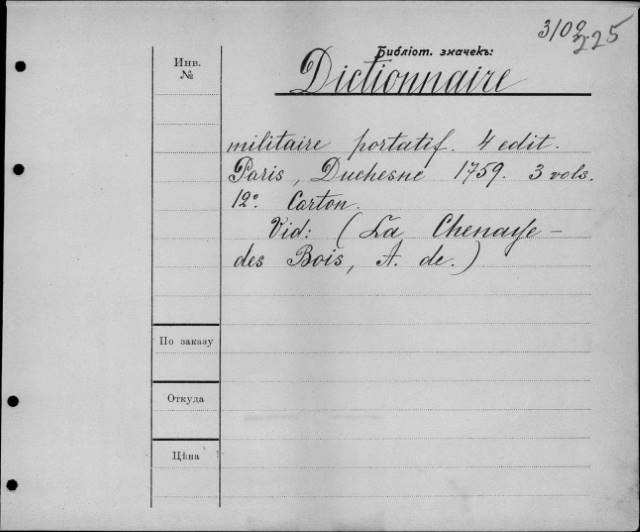 3/02
225
Библіот. значекъ:
Инв.
№
Dictionnaire
militaire portatif. 4 edit.
Paris, Duchesne 1759. 3 vols.
12º. Carton.
Vid: (La Chenaye-
des Bois, A. de.)
По заказу
Откуда
Цѣна